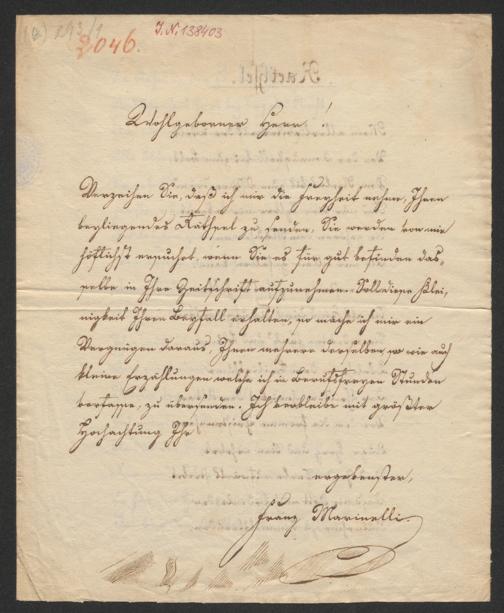 2046.
I.N. 138403
Wohlgeborner Herr!
Verzeihen Sie, daß ich mir die Freyheit nehme, Ihnen
beyliegendes Räthsel zu senden, Sie werden von mir
höflichst ersuchet, wenn Sie es für gut befinden das-
selbe in Ihre Zeitschrift aufzunehmen. Soll diese Klei-
nigkeit Ihren Beyfall erhalten, so mache ich mir ein
Vergnügen daraus, Ihnen mehrere derselben so wie auch
kleine Erzählungen welche ich in Berufsfreyen Stunden
verfasse, zu übersenden. Ich verbleibe mit größter
Hochachtung Ihr
ergebenster,
Franz Marinelli.